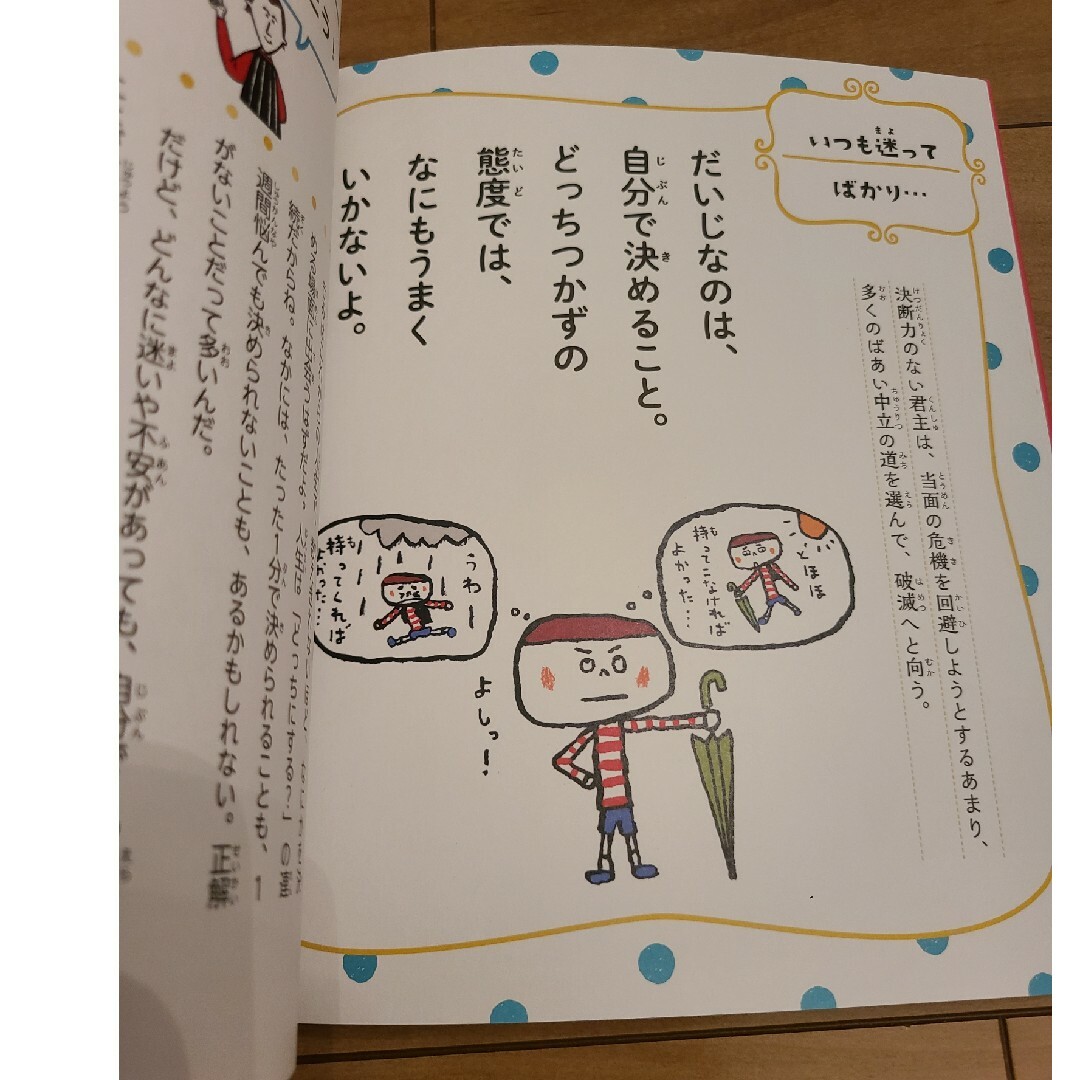 いつも迷って
ばかり…
決断力のない君主は、当面の危機を回避しようとするあまり、
多くのばあい中立の道を選んで、破滅へと向う。
だいじなのは、
自分で決めること。
どっちつかずの
態度では、
なにもうまく
いかないよ。
とほほ
持ってこなければ
よかった…
うわー
持ってくれば
よかった…
よしっ！
続だからね。なかには、たった1分で決められることも、1
週間悩んでも決められないことも、あるかもしれない。正解
がないことだって多いんだ。
だけど、どんなに迷いや不安があっても、自分で